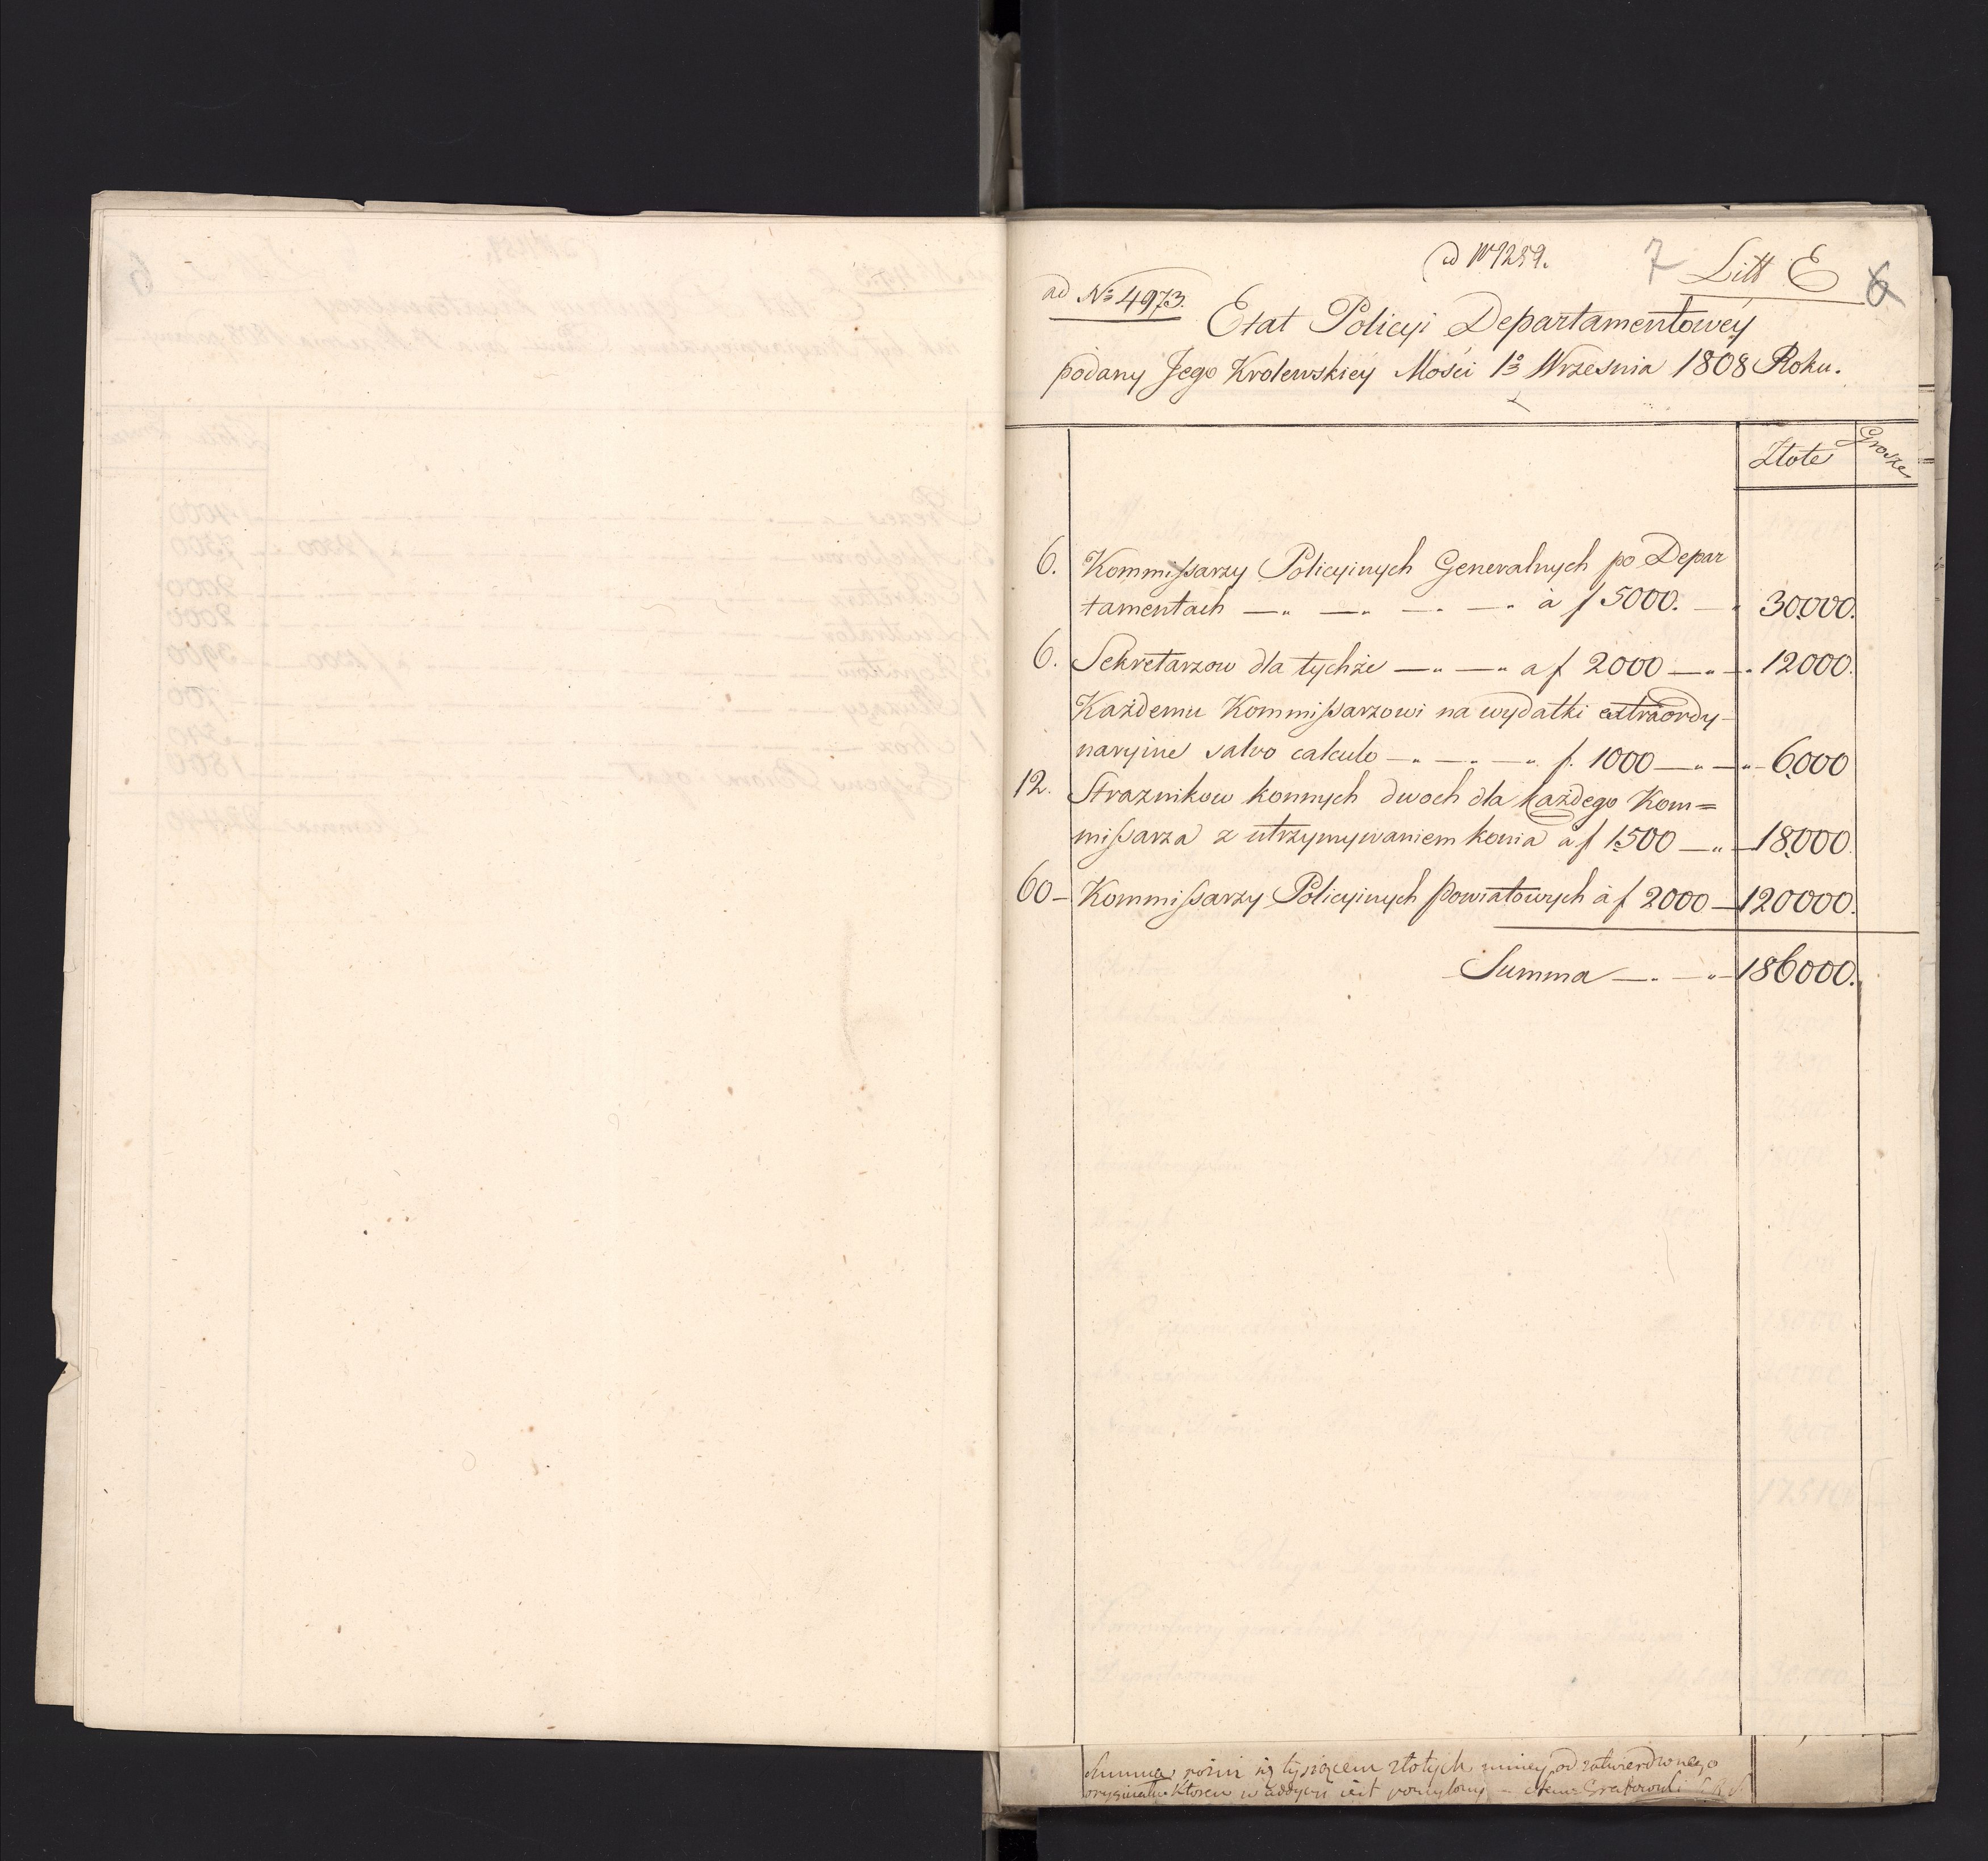 ad N 1259.
7
Litt E
6
ad No 4973.
Etat Policyi Departamentowey
podany Jego Krolewskiey Mości 13 Września 1808 Roku.
Złote
Grosze
6. Kommissarzy Policyinych Generalnych po Depar
tamentach — „ — „ — „ — „ à f 5000. — „ 30000.
6. Sekretarzow dla tychże — „ — „ a f 2000 — „ — „ 12000.
Każdemu Kommissarzowi na wydatki extraordy-
naryine salvo calculo — „ — „ — „ f. 1000 — „ — „ 6000
12. Straznikow konnych dwoch dla każdego Kom=
missarza z utrzymywaniem konia a f 1500 — „ — 18000.
60 — Kommissarzy Policyinych Powiatowych à f 2000 — 120000.
Summa — „ — „ — 186000.
Summa rożni się tysiącem złotych mniey od zatwierdzonego
oryginału Ktoren w addycyi iest pomylony —